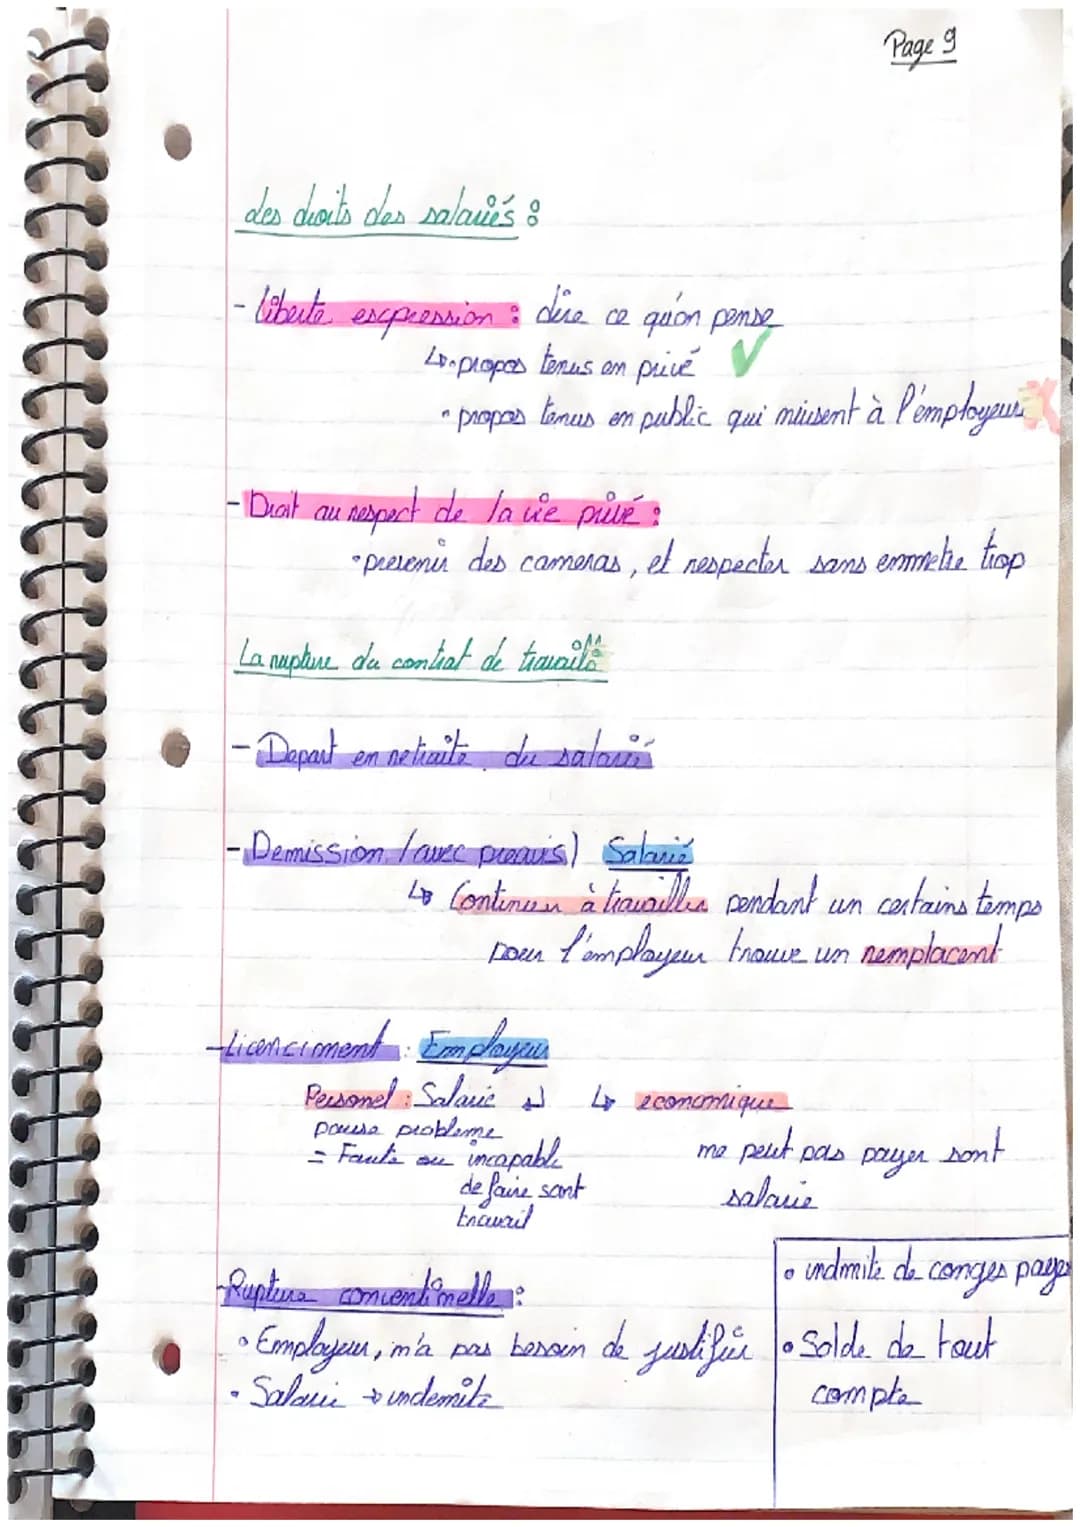 Page 9
des droits des salariés :
- liberte expression : dire ce qu'on pense
↳ • propos tenus en privé ✓
• propos tenus en public qui niusent à l'employeur ✗
- Droit au respect de la vie privé :
• prevenir des cameras, et respecter sans emmetre trop
La rupture du contrat de travail :
- Depart en retraite du salarié
- Demission (avec preavis) Salarié
↳ Continuer à travailler pendant un certains temps
pour l'employeur trouve un remplacent
- Licenciment : Employeur
Personel : Salarie ↲ ↳ economique
pause probleme
= Faute ou incapable
de faire sont
travail
ne peut pas payer sont
salarie
- Rupture conventionnelle :
• Employeur, n'a pas besoin de justifier
• Salarie → indemite
• indmite de conges payes
• Solde de tout
compte